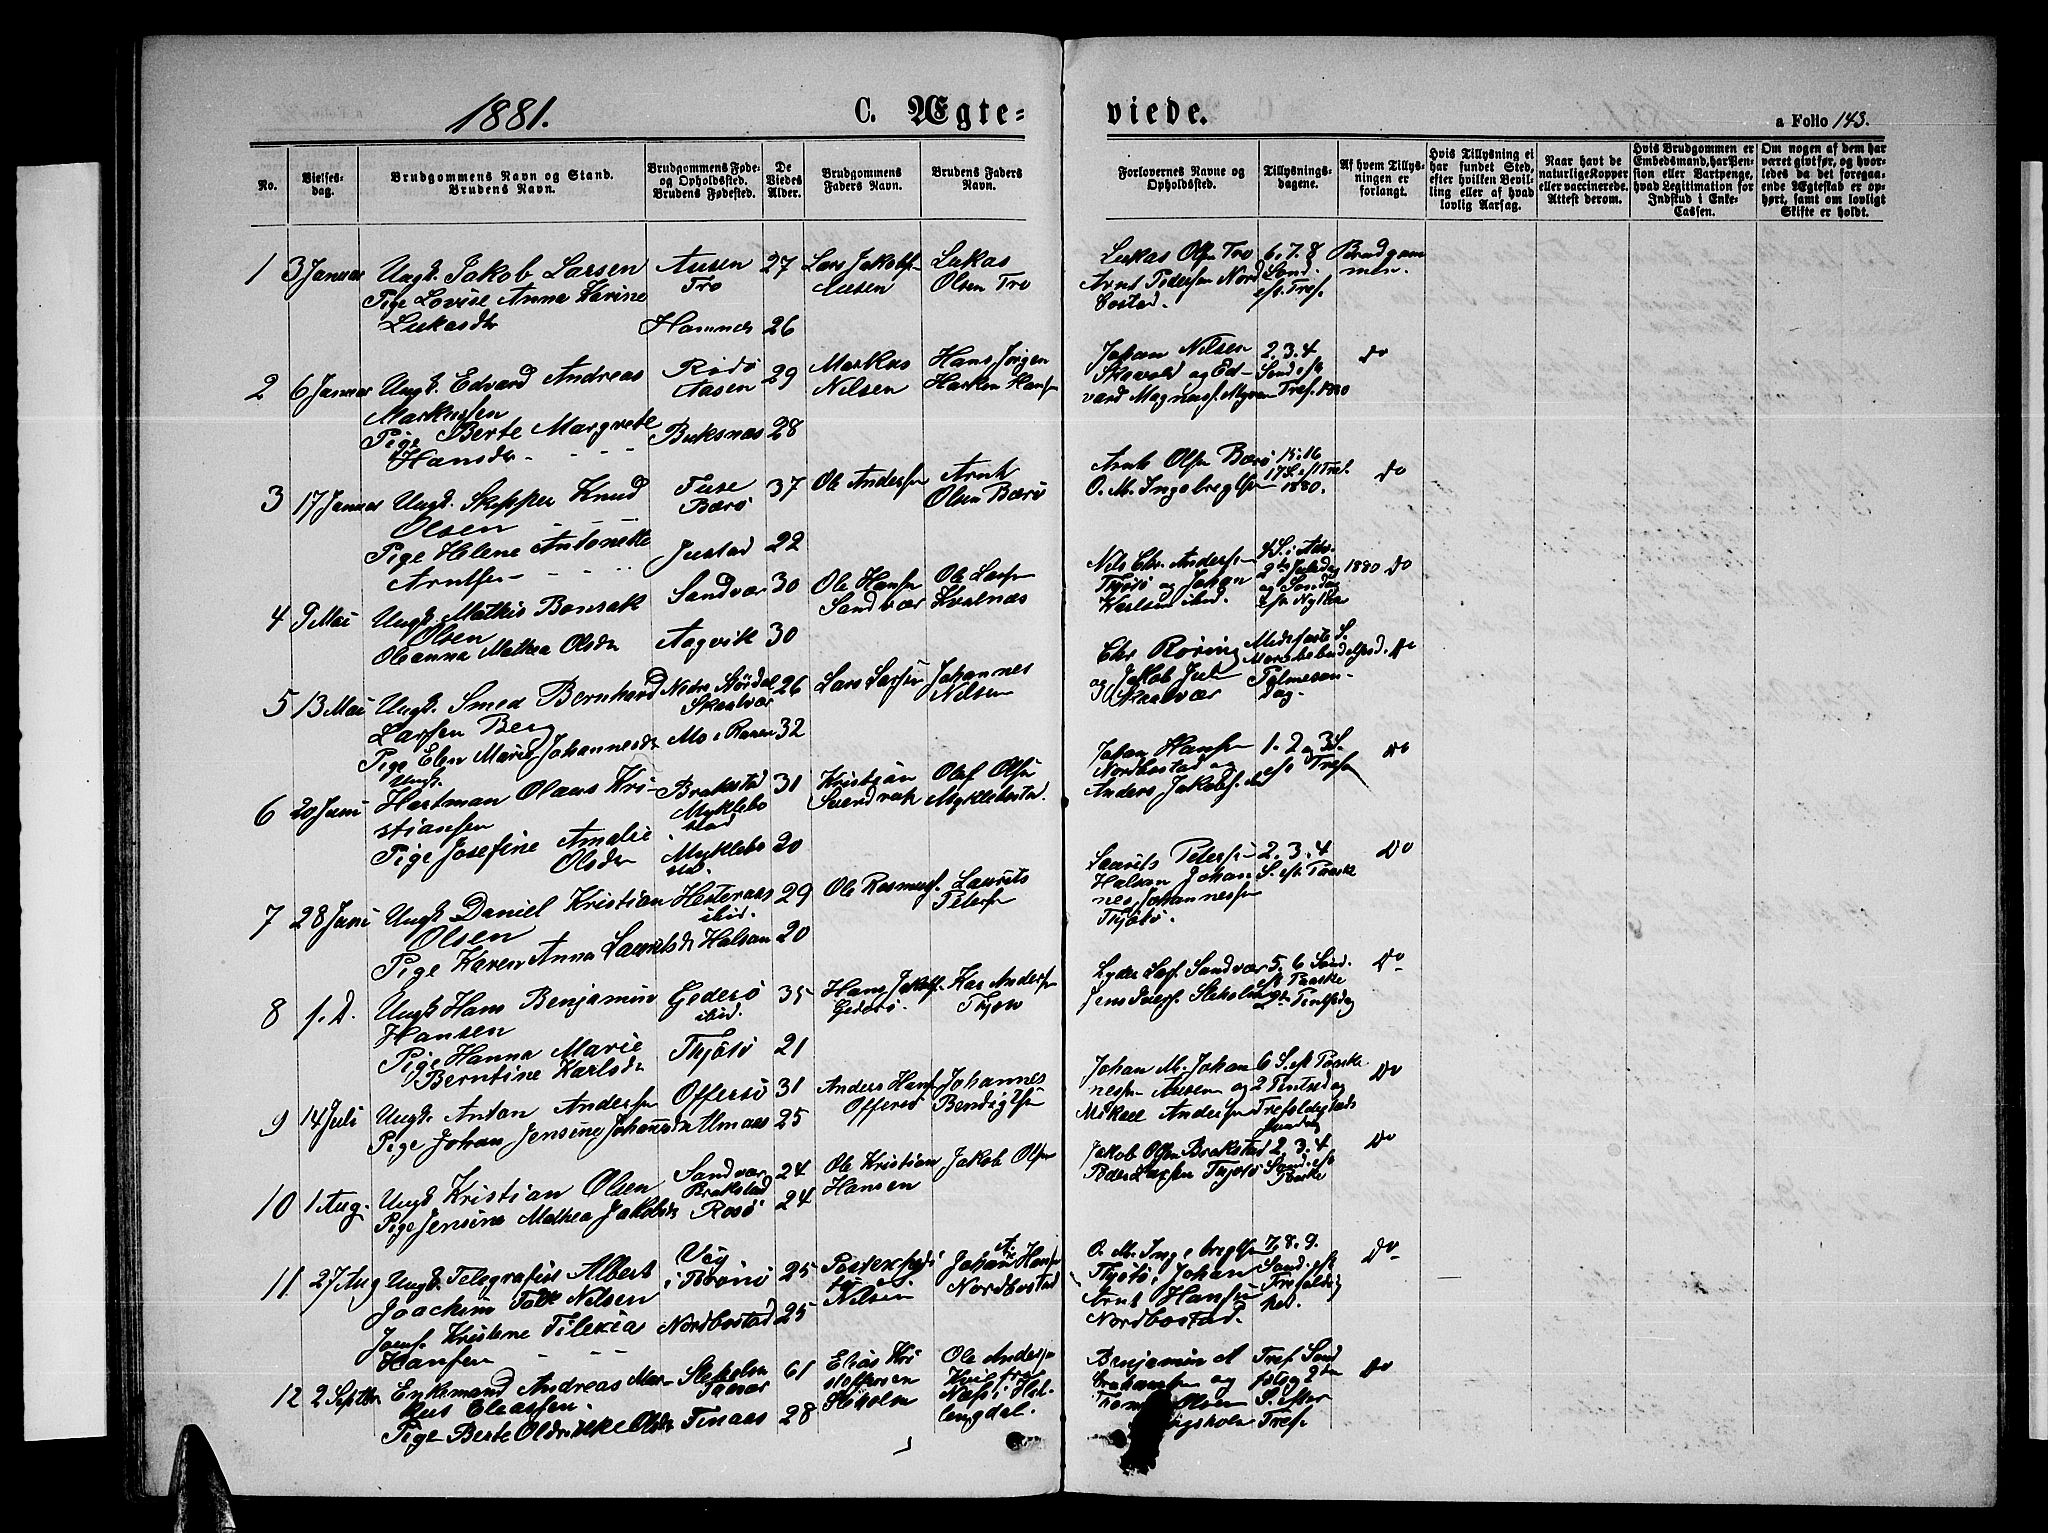 1881.
C. Ægte=
viede.
a Folio 143.
No.
Vielses-
dag.
Brudgommens Navn og Stand.
Brudens Navn.
Brudgommens Føde-
og Opholdssted.
Brudens Fødested.
De
Viedes
Alder.
Brudgommens
Faders Navn.
Brudens Faders
Navn.
Forlovernes Navne og
Opholdssted.
Tillysnings-
dagene.
Af hvem Tillys-
ningen er
forlangt.
Hvis Tillysning ei
har fundet Sted,
efter hvilken Bevil-
ling eller af hvad
lovlig Aarsag.
Naar havt de
naturlige Kopper
eller vaccinerede.
Attest derom.
Hvis Brudgommen er
Embedsmand, har Pen-
sion eller Vartpenge,
hvad Legitimation for
Indskud i Enke-
Cassen.
Om nogen af dem har
været givt før, og hvor-
ledes da det foregaa-
ende Ægteskab er op-
hørt, samt om lovligt
Skifte er holdt.
1 3 Januar Ungk. Jakob Larsen
Pige Lovise Anna Karine
Lukasdtr
Ausen
Tro
Hamnes
27
26
Lars Jakobs.
Ausen
Lukas
Olsen Tro
Lukas Olsen Tro
Arnt Pedersen Nord
bostad.
6. 7. 8
Sond.
eft. Tref.
Brudgom
men.
2 6 Januar Ungk. Edvard Andreas
Markussen
Pige Berte Margrete
Hansdtr
Rødø
Aasen
Buksnes
29
28
Markus
Nilsen
Hans Jørgen
Hansen
Johan Nilsen
og Ed-
vard Magnus.
2. 3. 4
Sond eft
Tref. 1880
Do
3 17 Januar Ungk. Skipper Knud
Olsen
Pige Helene Antonette
Arntsen
Tuse
Bærø
Justad
37
22
Ole Andersen
Arnt
Olsen Bærø
Arnt Olsen Bærø
O. M. Ingebregtsen
15. 16
17 S. eft Tref.
1880.
Do
4 9 Mai Ungk. Mathis Bonsak
Olsen
Oleanna Mathea Olsdtr
Sandvær
Aagvik
30
30
Ole Hansen
Sandvær
Ole Larsen
Kvalnæs
Nils Chr. Andersen
Thjøtø og Johan
Karlsen ibid.
4 S. i Adv.
2den Juledag 1880
og Søndag
eft Nytaar
Do
5 13 Mai Ungk. Smed Bernhard
Larsen Berg
Pige Elen Marie Johannesdtr
Nedre Størdal
Skaalvær
Mo i Ranen
26
32
Lars Larsen
Johannes
Nilsen
Chr Røring
og Jakob Juul
Skaalvær
Midfaste S.
Mariæ bebud elsesd.
Palmesøn-
dag.
Do
6 20 Juni Ungk.
Hartman Olaus Kri-
stiansen
Pige Josefine Amalie
Olsdtr
Brakstad
Myklebo
stad
Myklebo
stad.
31
20
Kristian
Svendrak
Olaf Olsen
Myklebostad.
Johan Hansen
Nordbostad og
Anders Jakobs. ibid
1. 2 og 3 S.
eft Tref
Do
7 28 Juni Ungk Daniel Kristian
Olsen
Pige Karen Anna Lauritsdtr
Hesteraas
ibid.
Halsan
29
20
Ole Rasmus.
Laurits
Petersen
Laurits Petersen
Halsan Johan
nes Johannessen
Thjøtø.
2. 3. 4
S. eft. Paaske
Do
8 s. D. Ungk Hans Benjamin
Hansen
Pige Hanna Marie
Berntine Karlsdtr
Gederø
ibid.
Thjøtø
35
21
Hans Jakobs.
Gederø.
Andersen
Thjøtø
Lyder Lars. Sandvær
5. 6 Sønd.
eft Paaske
2den Pintsedag
Do
9 14 Juli Ungk. Anton Andersen
Pige Johan Jensine Johannesdtr
Offersø
Almaas
31
25
Anders Hans.
Offersø
Johannes
Bendigtsen
Johan M. Johan
nessen Ausen og
Mikael Andersen
6 S. eft Paaske
2 Pintsedag
Trefoldigheds
Søndag
Do
10 1 Aug. Ungk Kristian Olsen
Pige Jensine Mathea Jakobsdtr
Sandvær
Brakstad
Rosø
24
24
Ole Kristian
Hansen
Jakob Olsen
Jakob Olsen Brakstad
Peder Larsen Thjøtø
2. 3. 4
Sønd. eft
Paaske
Do
11 27 Aug Ungk. Telegrafist Albert
Joachim Falk Nilsen
Jomf. Kristene Tilekia
Hansen
Vøg
i Brønø
Nordbostad
25
25
Postexpedi
tør
Nilsen
Johan A. Hansen
Nordbostad
O. M. Ingebregtsen
Thjøtø, Johan
Arnt Hansen
Nordbostad.
7. 8. 9.
Sønd. eft
Trefoldig
hed.
Do
12 2 Septbr Enkemand Andreas Mar-
kus Eleassen.
Pige Berte Oldrikke Olsdtr
Stokholm
Finaas
61
28
Elias Kri
stoffersen
Stokholm
Ole Andersen
Næss i Hat
lingdal.
Benjamin A
brahamsen og
Olsen
holm
Tref Sønd
og 2den
S. efter
Tref
Do